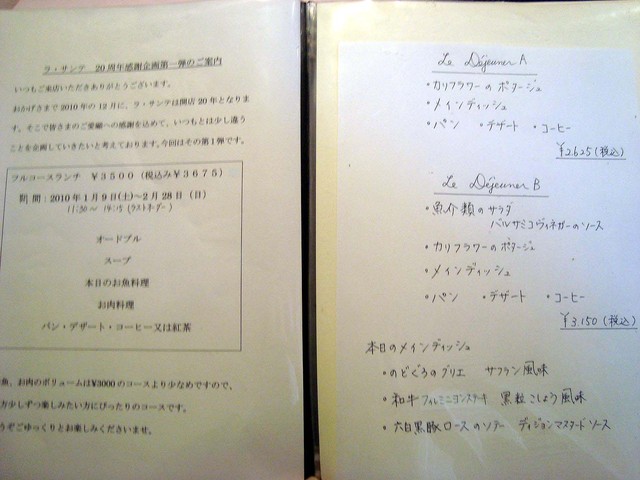 ラ・サンテ 20周年感謝企画第一弾のご案内
いつもご来店いただきありがとうございます。
おかげさまで2010年の12月に、ラ・サンテは開店20年となりま
す。そこで皆さまのご愛顧への感謝を込めて、いつもとは少し違う
ことを企画していきたいと考えております。今回はその第1弾です。
フルコースランチ ¥3500(税込み¥3675)
期間:2010年1月9日(土)~2月28日(日)
11:30~14:15(ラストオーダー)
オードブル
スープ
本日のお魚料理
お肉料理
パン・デザート・コーヒー又は紅茶
魚、お肉のボリュームは¥3000のコースより少なめですので、
方少しずつ楽しみたい方にぴったりのコースです。
うぞごゆっくりとお楽しみくださいませ。
Le Déjeuner A
・カリフラワーのポタージュ
・メインディッシュ
・パン ・デザート ・コーヒー
¥2.625(税込)
Le Déjeuner B
・魚介類のサラダ
バルサミコヴィネガーのソース
・カリフラワーのポタージュ
・メインディッシュ
・パン ・デザート ・コーヒー
¥3.150(税込)
本日のメインディッシュ
・のどぐろのグリエ サフラン風味
・和牛フィレミニヨンステーキ 黒粒こしょう風味
・六白黒豚ロースのソテー ディジョンマスタードソース